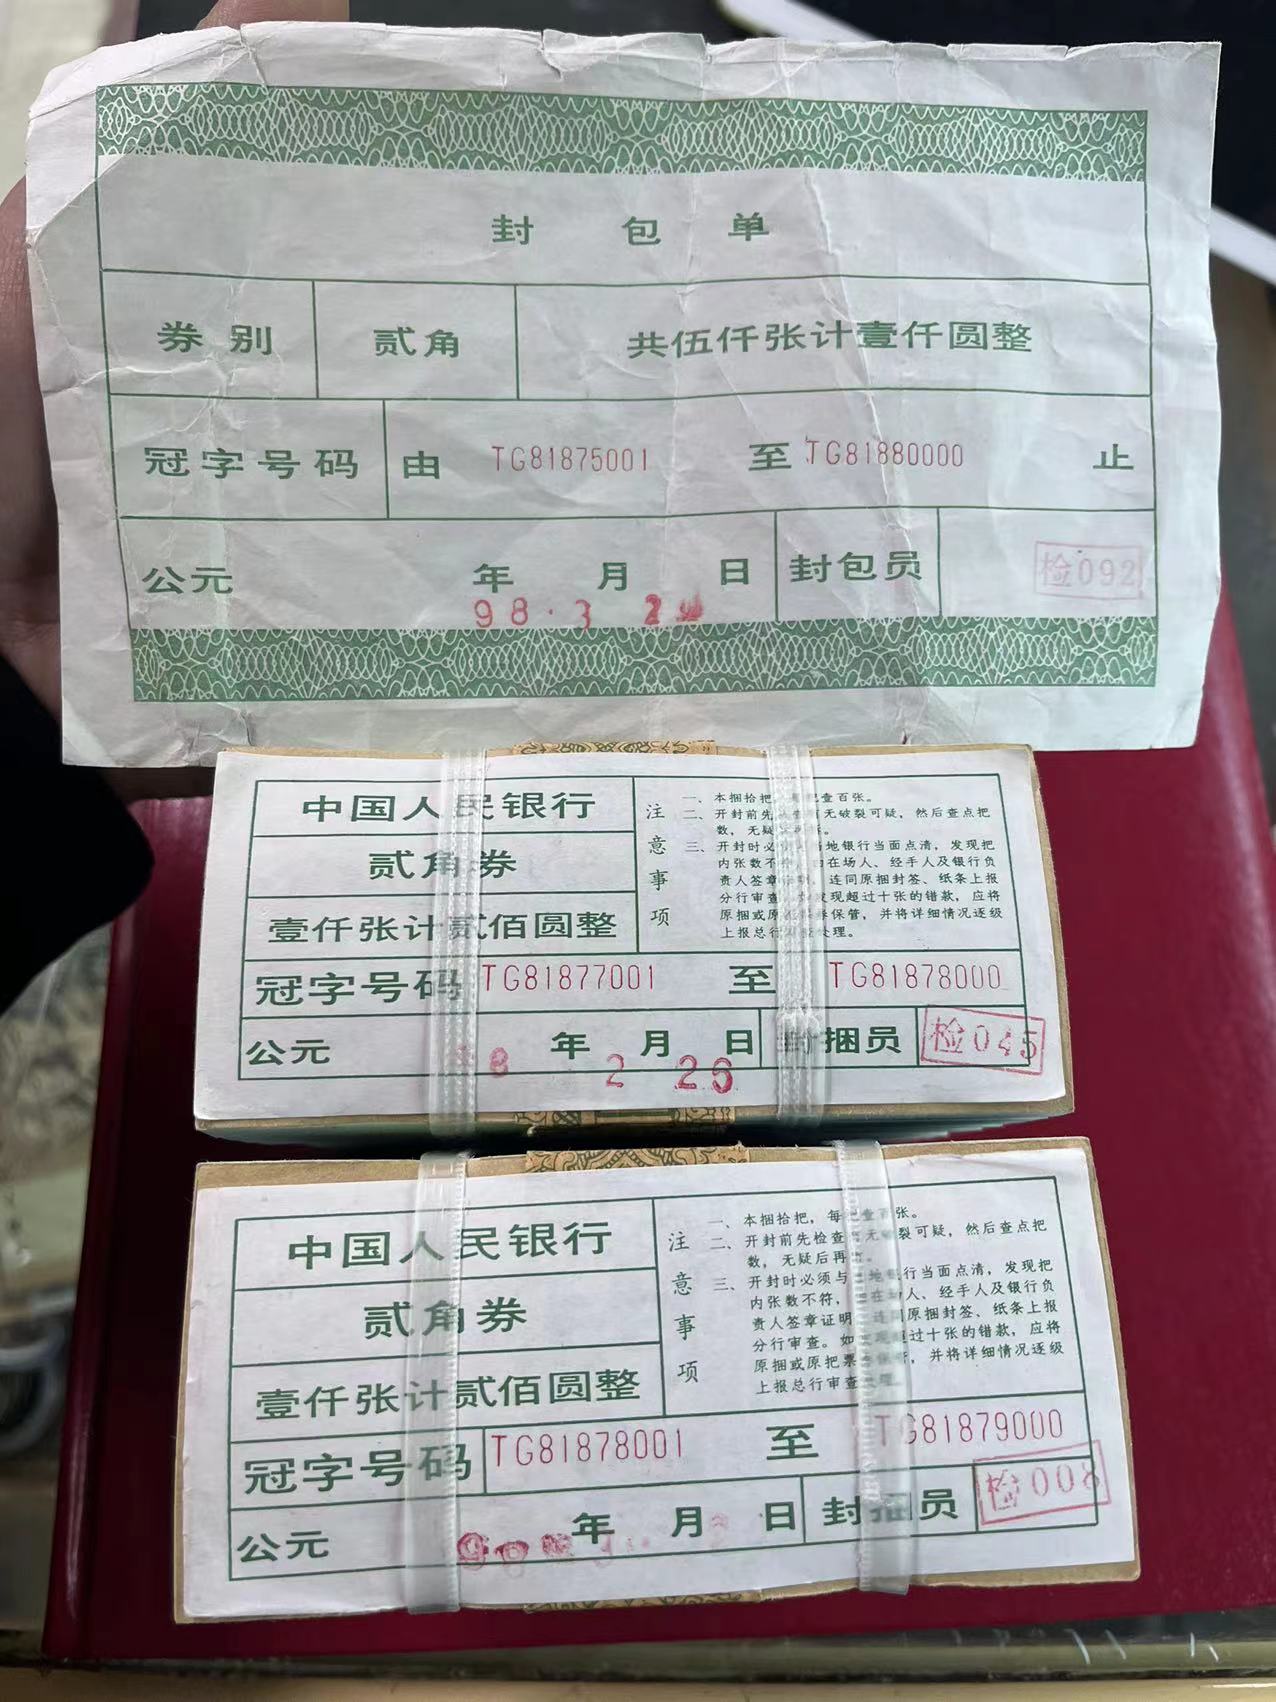 封包单
券别 贰角 共伍仟张计壹仟圆整
冠字号码 由 TG81875001 至 TG81880000 止
公元 年 月 日 封包员 检092
98.3
中国人民银行
贰角券
壹仟张计贰佰圆整
注意事项
一、本捆拾把,把壹百张。
二、开封前先查有无破裂可疑,然后查点把
数,无疑
三、开封时必地银行当面点清,发现把
内张数不符,由在场人、经手人及银行负
责人签章,连同原捆封签、纸条上报
分行审查。发现超过十张的错款,应将
原捆或原保管,并将详细情况逐级
上报总行处理。
冠字号码 TG81877001 至 TG81878000
公元 年 月 日 封捆员 检045
8 2 26
中国人民银行
贰角券
壹仟张计贰佰圆整
注意事项
一、本捆拾把,每把壹百张。
二、开封前先检查有无破裂可疑,然后查点把
数,无疑后再
三、开封时必须与当地银行当面点清,发现把
内张数不符,在场人、经手人及银行负
责人签章证明,连同原捆封签、纸条上报
分行审查。如发现超过十张的错款,应将
原捆或原把票保管,并将详细情况逐级
上报总行审查处理。
冠字号码 TG81878001 至 TG81879000
公元 年 月 日 封捆员 检008